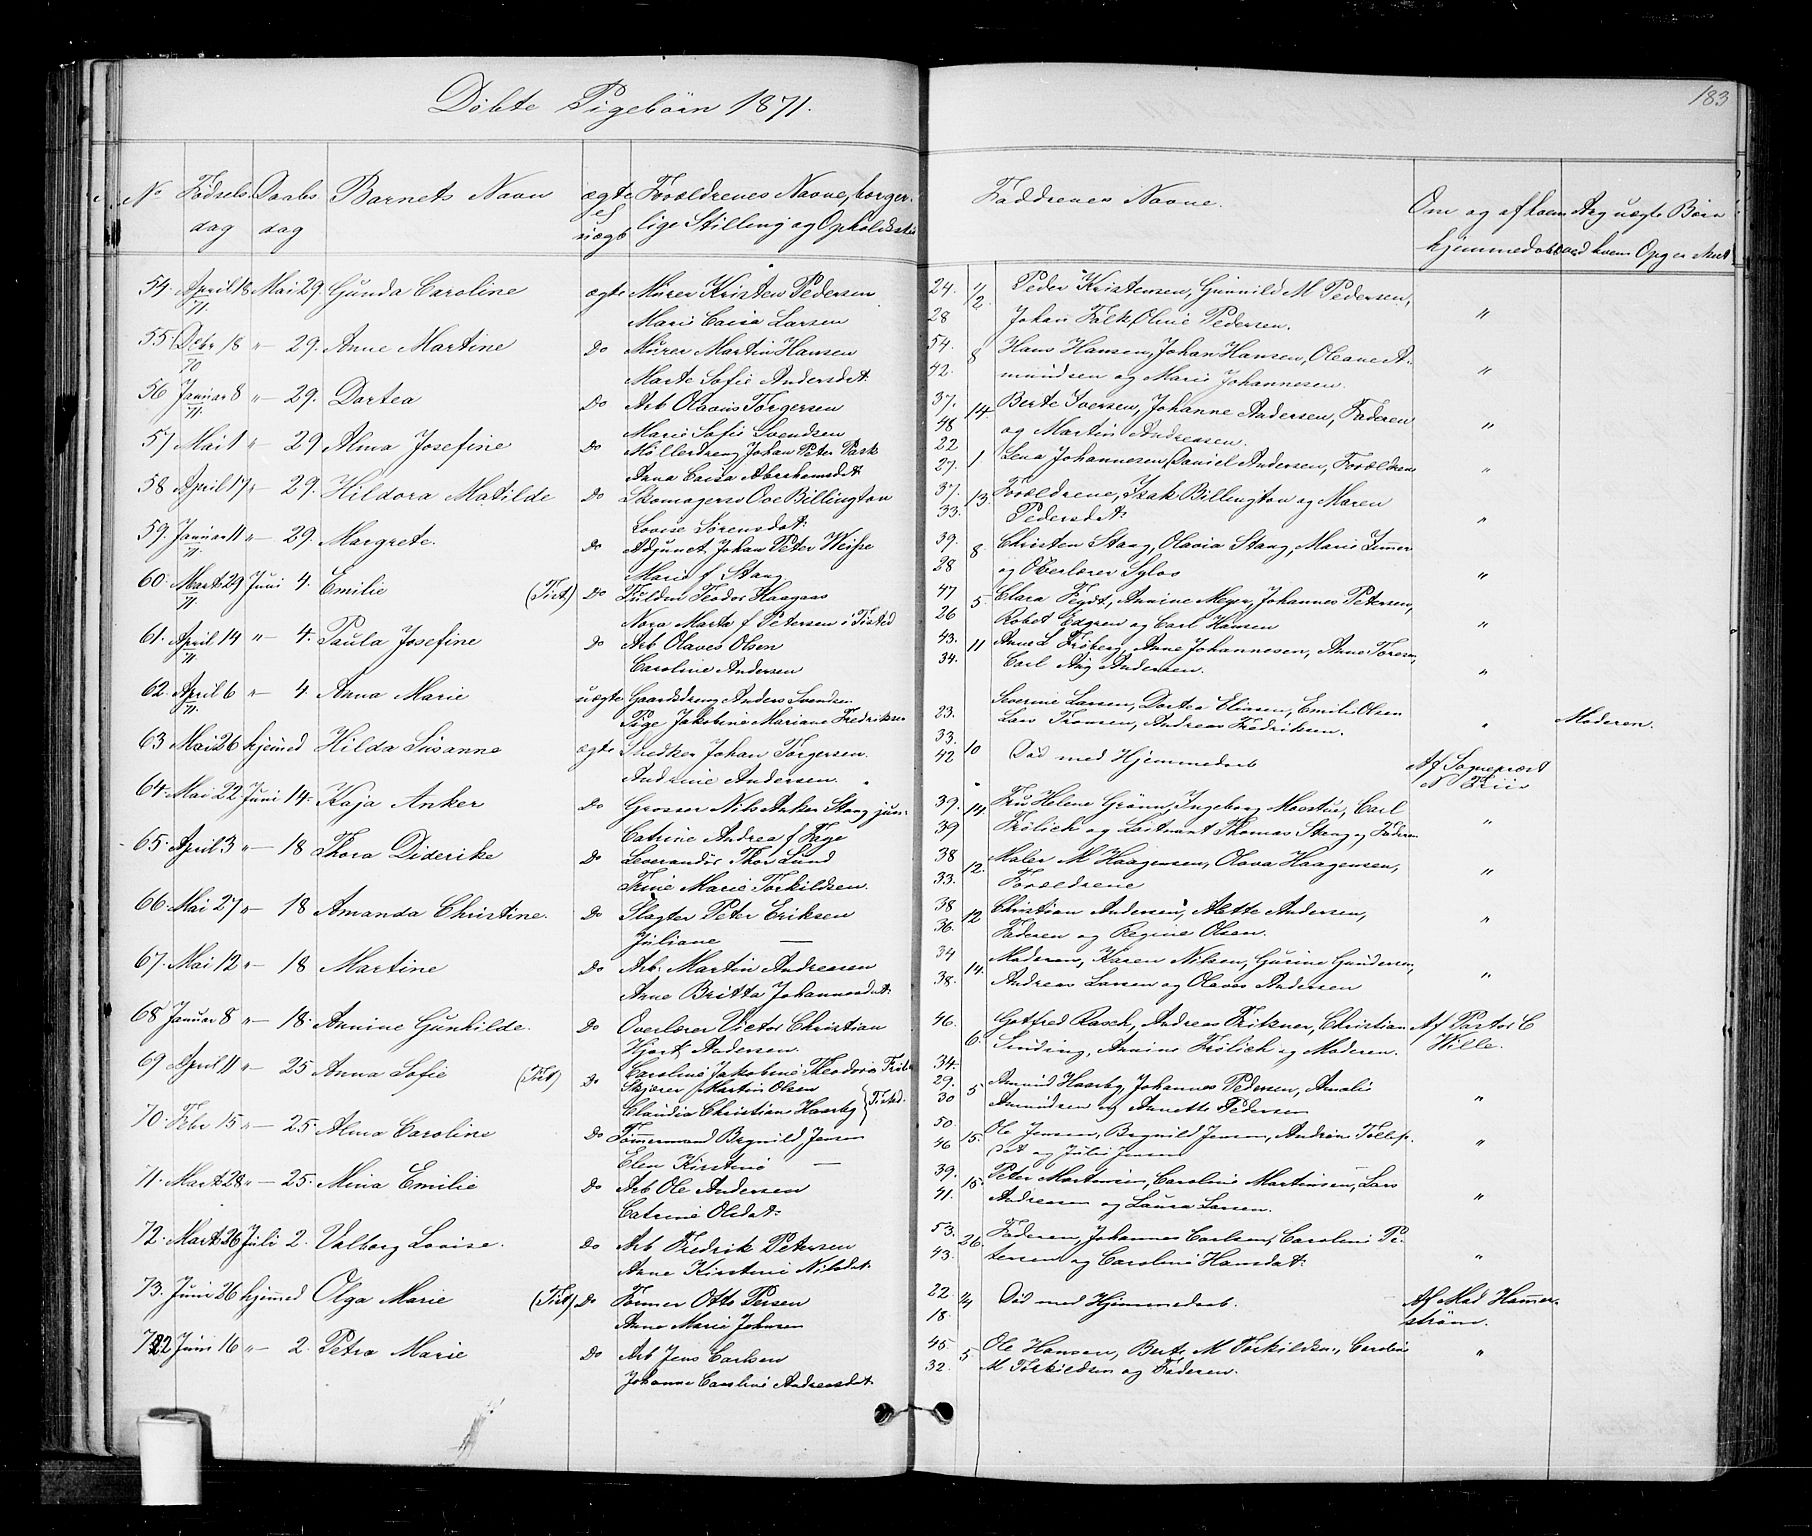 Døbte Pigebörn 1871.
183
No Fødsels dag Daabs dag Barnets Navn ægte el uægt Forældrenes Navne, borger- lige Stilling og Opholdssted Faddrenes Navne. Om og af hvem hjemmedøbt Ang uægte Børn ved hvem Opg er
54. April 18 Mai 29. Gunda Caroline ægte Murer Kristen Pedersen 24. 1/2 Peder Kristensen, Gunnild M Pedersen, "
71. Marie Caisa Larsen 28 Johan Falk, Oline Pedersen.
55. Debr 18 " 29. Anne Martine Do Murer Martin Hansen 54. 8 Hans Hansen, Johan Hansen, Oleane A-
70 Marte Sofie Andersdat: 42. mundsen og Marie Johannesen. "
56 Januar 8 " 29. Dortea Do Arb Olavus Torgersen 37. 14. Berte Iversen, Johanne Andersen, Faderen
71. Marie Sofie Svendsen 48 og Martin Andreasen. "
57 Mai 1 " 29 Alma Josefine Do Møllerdreng Johan Peter Park 22 1. Lena Johannesen, Daniel Andersen, Forældrene
Anna Caisa Abrahamsdat 27. "
58 April 17 " 29. Hildora Matilde Do Skomagersv Ove Billington 37. 13. Forældrene, Isak Billington og Maren
Lovise Sørensdat: 33. Pedersdat: "
59. Januar 11 " 29. Margrete. Do Adjunct Johan Peter Weisse 39. 8. Christen Stang, Olavia Stang, Marie
71. Marie f. Stang 28 og Overlærer "
60. Marts 29 Juni 4. Emilie (Tist) Do Fuldm Teodor Haagaas 47 5. Clara, Annine Meyer, Johannes Petersen,
71. Nora Marte f Petersen i Tisted 26 Robet Edgren og Carl Hansen "
61. April 14 " 4. Paula Josefine Do Arb Olaves Olsen 43. 11 Anne L Frøberg, Anne Johannesen, Anne Toresen,
71. Caroline Andersen 34. Carl Aug Andersen. "
62. April 6 " 4 Anna Marie uægte Gaardsdreng Anders Svendsen Severine Larsen, Dortea Eliasen, Emilie Olsen
71. Pige Jakobine Mariane Fredriksen 23. Lars Tronsen, Andreas Fredriksen. " Moderen.
63 Mai 26 hjemed Hilda Susanne ægte Snedker Johan Torgersen. 33. 10 Død med Hjemmedaab Af Sogneprest
Andrine Andersen. 42 N Brüe
64. Mai 22 Juni 14. Kaja Anker Do Grosser Nils Anker Stang jun: 39. 14. Fru Helene Grønn, Ingeborg Mostue, Carl
Catrine Andrea f Fage 39 Frölich og Loitnant Thomas Stang og Faderen "
65. April 3 " 18 Thora Diderike Do Leverandør Thor Lund 38 12. Maler M Haagensen, Olava Haagensen,
Trine Marie Torkildsen. 33. Forældrene "
66. Mai 27 " 18 Amanda Christine. Do Slagter Peter Eriksen 38 12 Christian Andersen, Alette Andersen,
Juliane — 36. Faderen og Regine Olsen. "
67. Mai 12 " 18 Martine Do Arb. Martin Andreasen 34 14. Moderen, Karen Nilsen, Gurine Gundersen,
Anne Britta Johannesdat: 38. Andreas Larsen og Olaves Andersen "
68 Januar 8 " 18. Annine Gunhilde. Do Overlærer Victor Christian 46. 6. Gotfred Rasch, Andreas Fritzner, Christian Af Pastor C
Hjort Andersen. Sinding, Annine Frölich og Moderen. Wille.
Caroline Jakobine Theodora 34.
69 April 11 " 25 Anna Sofie (Tist) Do Skjærer Martin Olsen 29. 5. Amund Haarby, Johannes Pedersen, Amalie
Claudia Christian Haarby } Tisted. 30 Amundsen og Annette Pedersen "
70. Febr 15 " 25. Alma Caroline Do Tømmermand Brynild Jensen 50. 15. Ole Jensen, Brynild Jensen, Andrine Tollefs-
Elen Kirstine — 46 dat og Julie Jensen "
71. Marts 28 " 25. Mina Emilie Do Arb Ole Andersen 39. 15. Peter Martinsen, Caroline Martinsen, Lars
Catrine Olsdat: 41. Andreasen og Laura Larsen. "
72. Marts 26 Juli 2. Valborg Lovise. Do Arb Fredrik Petersen 53. 26. Faderen, Johannes Carlsen, Caroline Pe-
Anne Kirstine Nilsdat: 43. tersen og Caroline Hansdat: "
73. Juni 26 hjemed Olga Marie (Tist) Do Former Otto Persen 22. 1/4 Død med Hjemmedaab. Af Mad Hammer-
Anne Marie Johnsen 18. strøm.
Juni 16 " 2. Petra Marie Do Arb Jens Carlsen 45. 5. Ole Hansen, Berte M Torkildsen, Caroline
Johanne Caroline Andreasdat: 32. M Torkildsen og Faderen. "